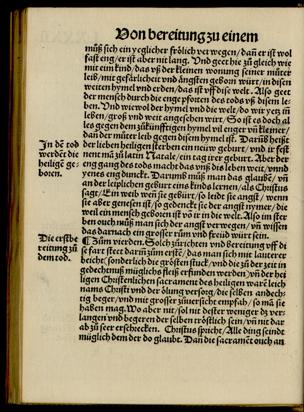 Von bereitung zu einem
müß sich ein yeglicher frölich verwegen / dañ er ist wol
fast eng / er ist aber nit lang. Vnd geet hie zů gleich wie
mit ein kind / das vß der kleinen wonung seiner můter
leib / mit gefärlicheit vnd ängsten geborn würt / in disen
weiten hymel vnd erden / das ist vff dise welt. Also geet
der mensch durch die enge pforten des todts vß disem le-
ben. Vnd wiewol der hymel vnd die welt / do wir yetz in
leben / groß vnd weit angesehen würt / So ist es doch al
les gegen dem zůkünfftigen hymel vil enger vñ kleiner /
dan der můter leib gegen disem hymel ist. Darüb heißt
In dẽ tod
werdẽt die
heiligẽ ge-
boren.
der lieben heiligen sterben ein new geburt / vnd ir fest
nent mã zů latin Natale / ein tag irer geburt. Aber der
eng gang des todts macht das vnß dis leben weit / vnnd
yenes eng dunckt. Darumb můß man das glaubẽ / vñ
an der leiplichen geburt eins kindts lernen / als Christus
sagt / Ein weib wen sie geburt / so leidt sie angst / wenn
sie aber genesen ist / so gedenckt sie der angst nymer / die
weil ein mensch geboren ist võ ir in die welt. Also im ster
ben ouch můß man sich der angst verwegen / vñ wissen
das darnach ein grosser rům vnd freüd würt sein.
Die erst be
reitung zů
dem tod.
¶ Zům vierden. Solch zůrichten vnd bereitung vff di
se fart steet darin zům erstẽ / das man sich mit lauterer
beicht (sonderlich die grösten stuck / vnd die zů der zeit in
gedechtnuß müglichs fleiß erfunden werden) vñ der hei
ligen Christenlichen sacrament des heiligen waren leich
nams Christi vnd der ölung versorg / die selben andech-
tig beger / vnd mit grosser zůuersicht empfah / so mã sie
haben mag. Wo aber nit / so sol nit dester weniger dz ver-
langen vnd begeren der selben tröstlich sein / vñ nit dar
ab zů seer erschrecken. Christus spricht / Alle ding seindt
müglich dem der do glaubt. Dan die sacrament ouch an